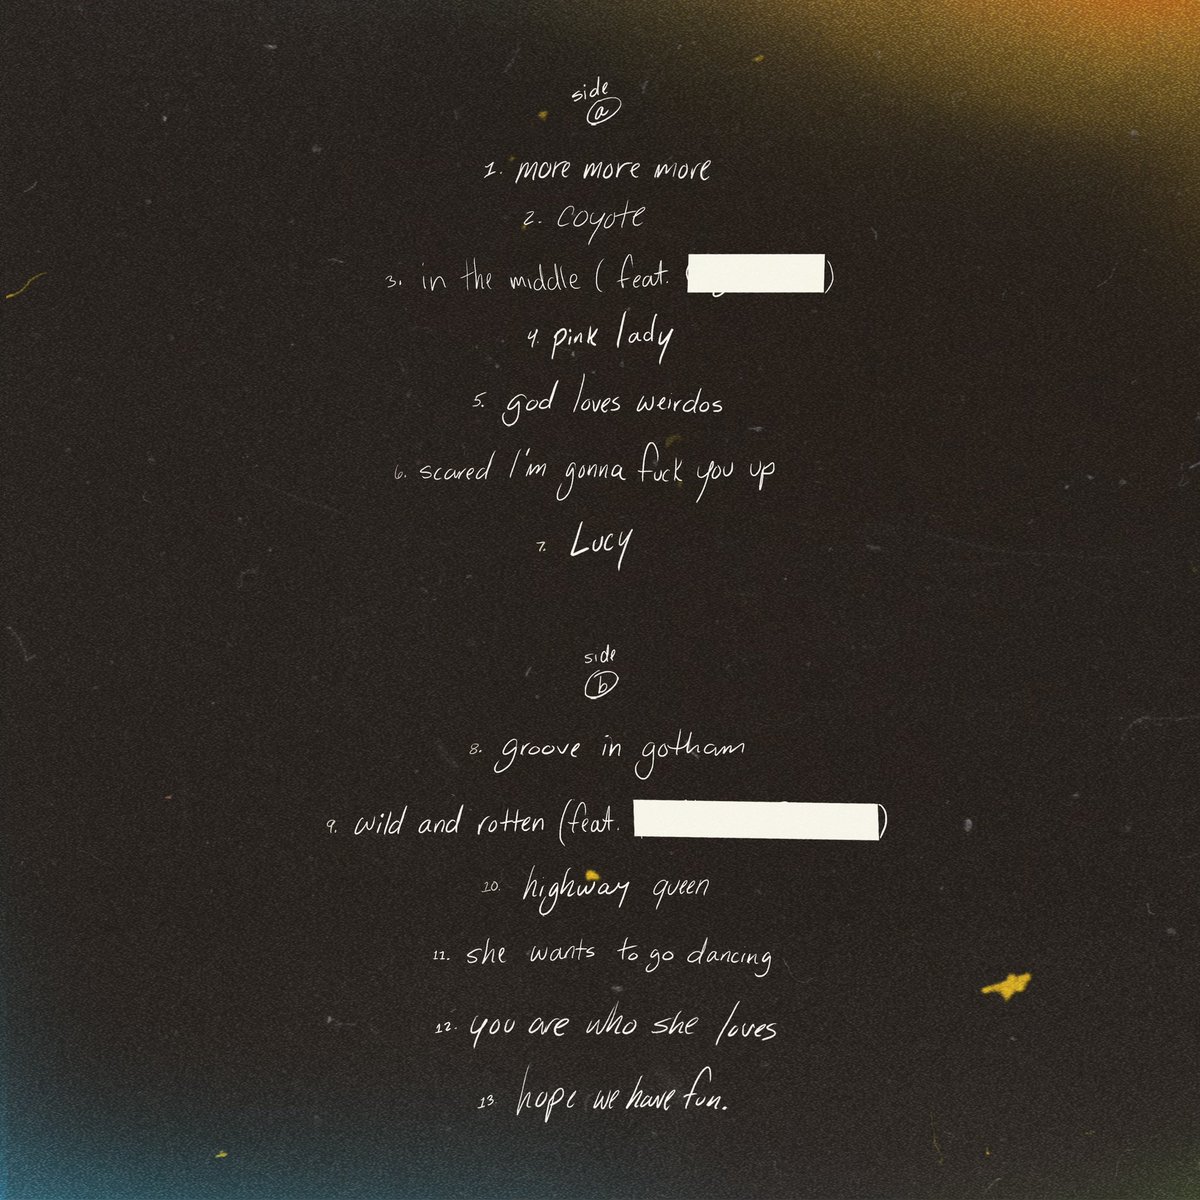 side
a
1. more more more
2. coyote
3. in the middle (feat. )
4. pink lady
5. god loves weirdos
6. scared I'm gonna fuck you up
7. Lucy
side
b
8. groove in gotham
9. wild and rotten (feat. )
10. highway queen
11. she wants to go dancing
12. you are who she loves
13. hope we have fun.